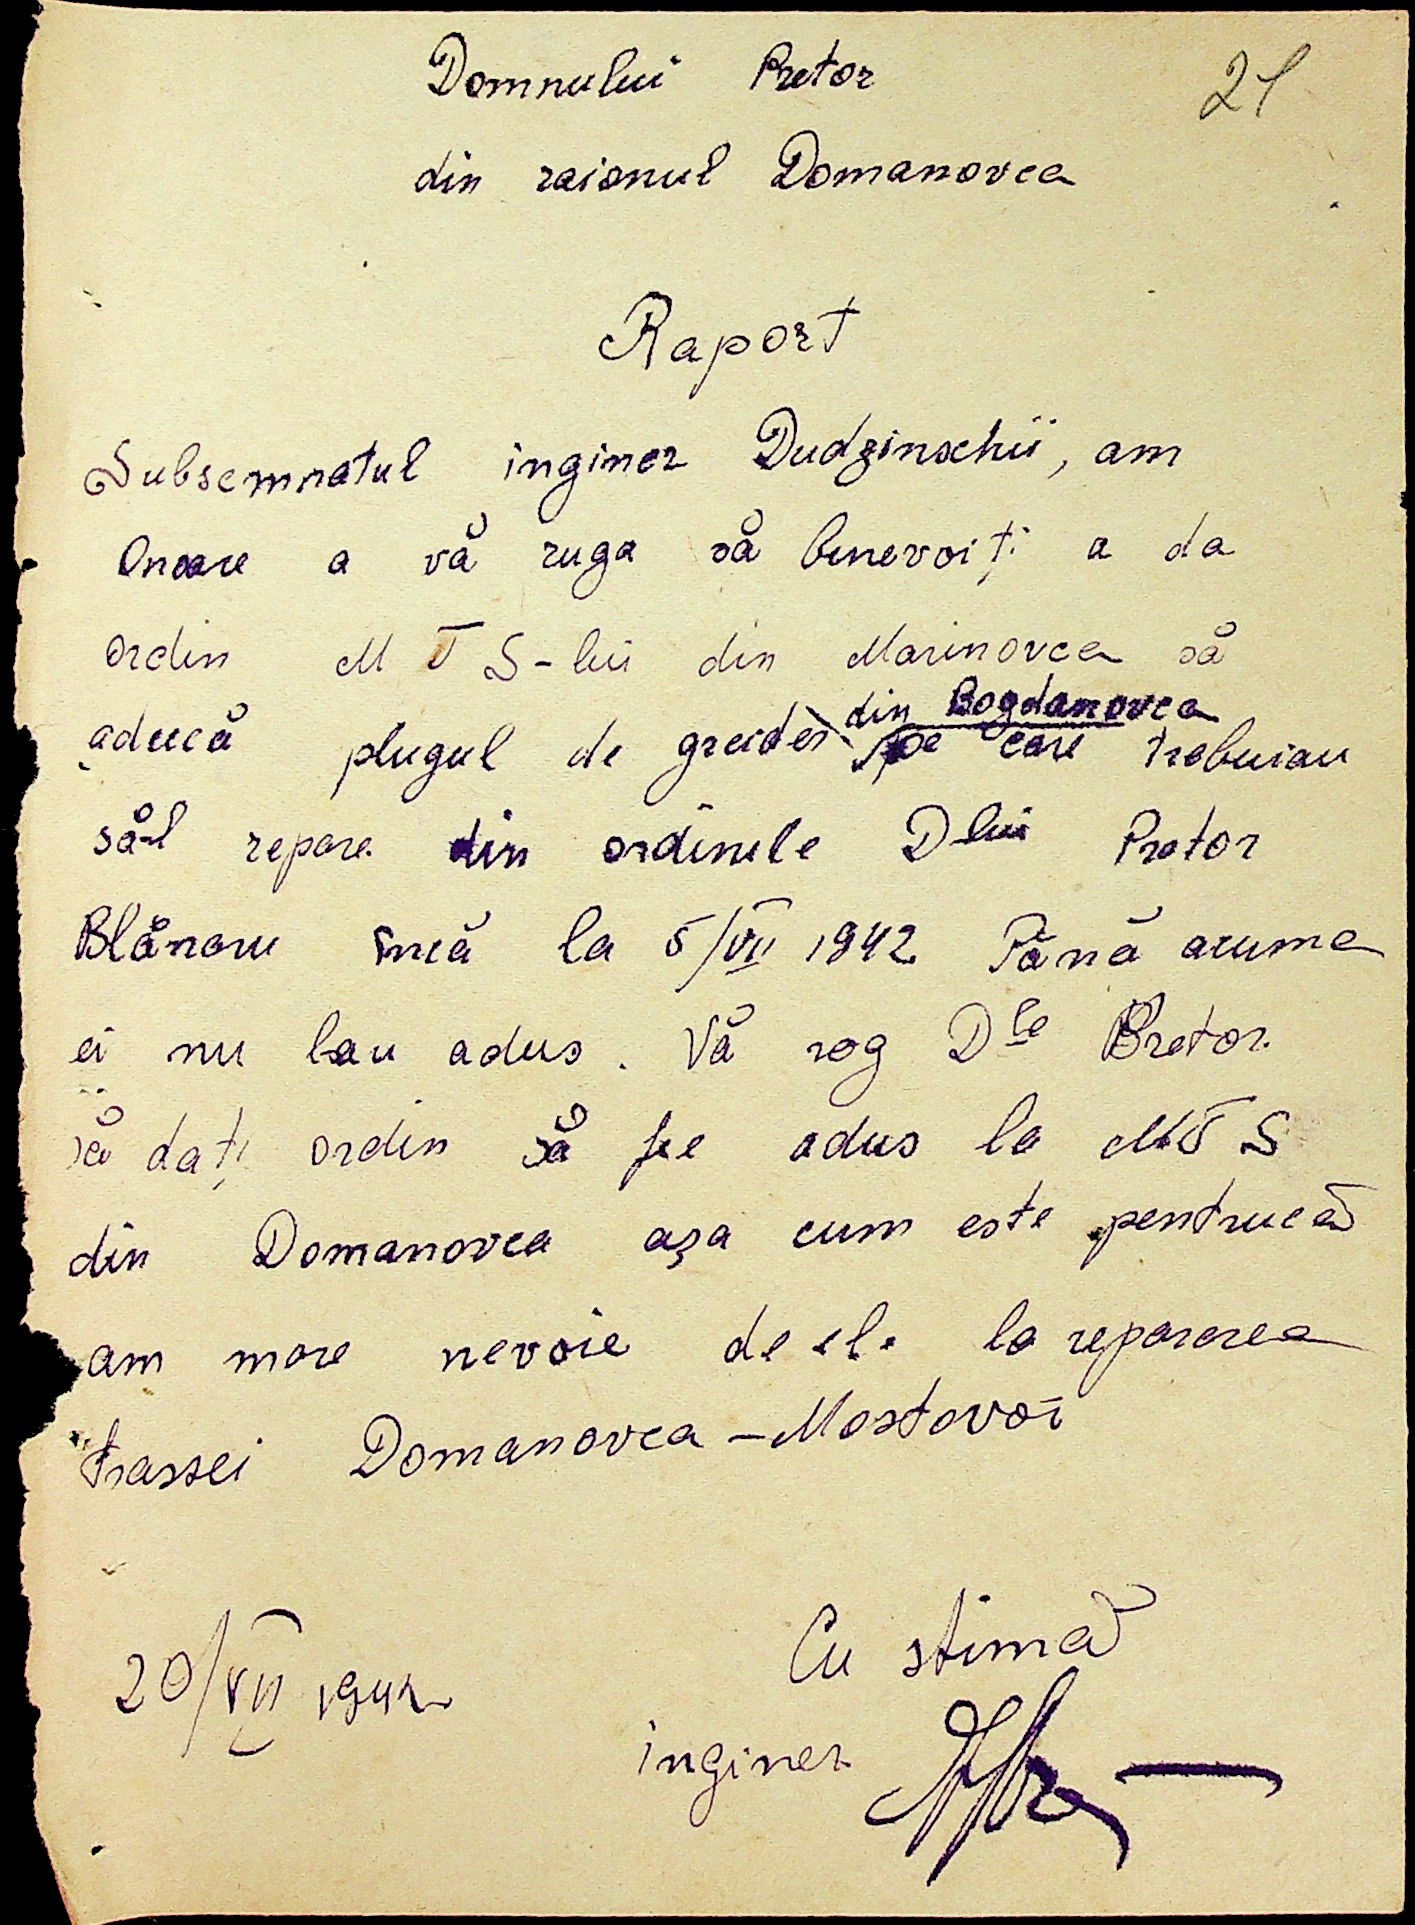 21
Domnului Pretor
din raionul Domanovca
Raport
Subsemnatul inginer Dudzinschii, am
Onoare a vă ruga să benevoiți a da
ordin MTS-lui din Marinovca să
din Bogdanovca
aducă plugul de greider pe care trebuiau
să-l repare din ordinele Dlui Pretor
Blănaru încă la 5/VII 1942 Până acuma
ei nu lau adus. Vă rog Dle Pretor
să dați ordin să fie adus la MTS
din Domanovca așa cum este pentrucă
am mare nevoie de el. la repararea
trassei Domanovca - Mostovoi
Cu stimă
20/VII 1942
inginer